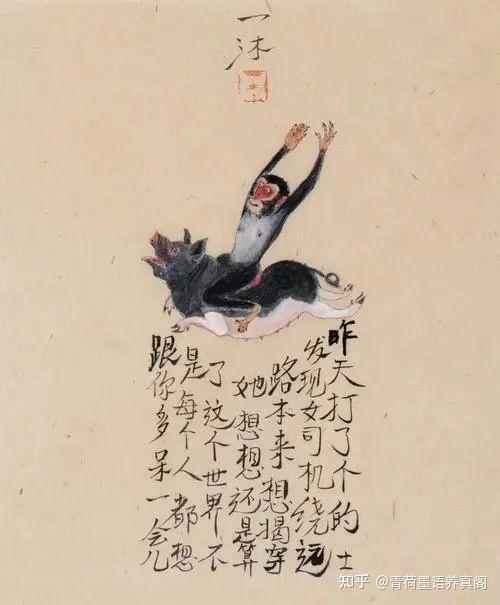 一沐
昨天打了个的士
发现女司机绕远
路本来想揭穿
她想想还是算
了这个世界不
是每个人都想
跟你多呆一会儿
知乎 @青荷墨语养真阁